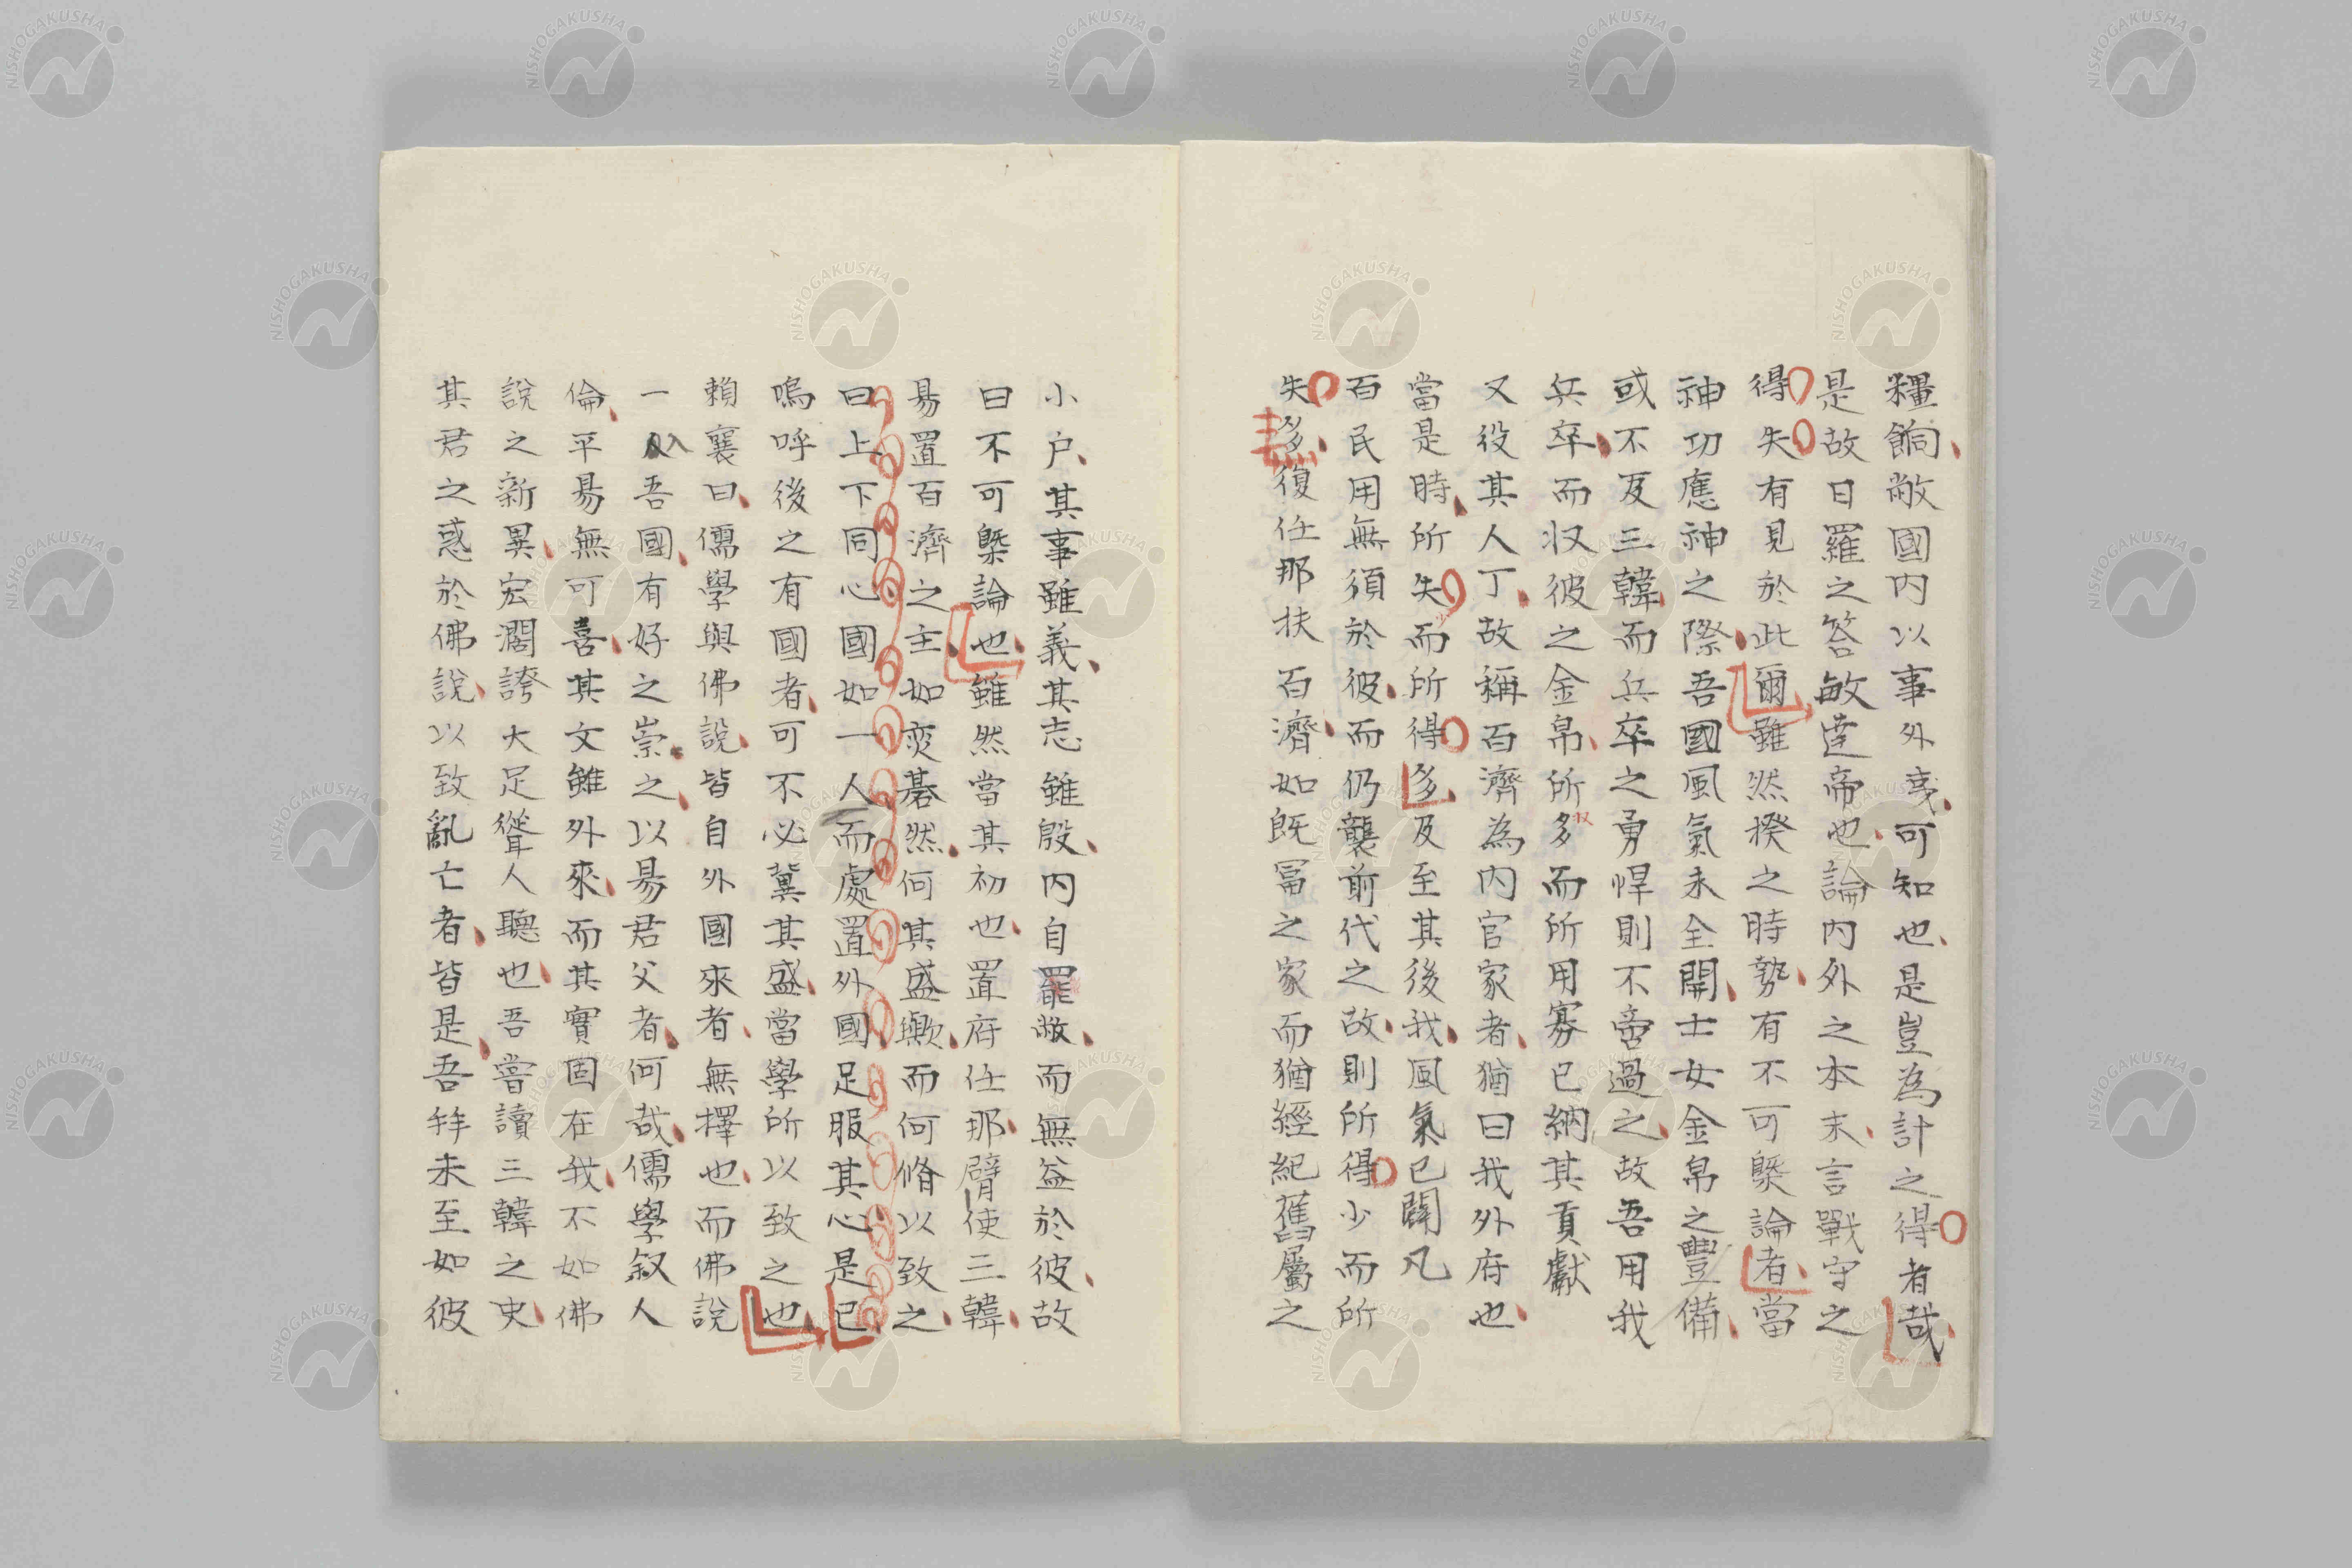 糧餉敝國內以事外夷可知也是豈為計之得者哉
是故日羅之答敏達帝也論內外之本末言戰守之
得失有見於此爾雖然揆之時勢有不可槩論者當
神功應神之際吾國風氣未全開士女金帛之豐備
或不及三韓而兵卒之勇悍則不啻過之故吾用我
兵卒而収彼之金帛所多而所用寡已納其貢獻
又役其人丁故稱百濟為內官家者猶曰我外府也
當是時所失而所得多及至其後我風氣已闢凡
百民用無須於彼而仍襲前代之故則所得少而所
失多復任那扶百濟如既冨之家而猶經紀舊屬之
小户其事雖義其志雖殷內自罷敝而無益於彼故
曰不可槩論也雖然當其初也置府任那臂使三韓
易置百濟之主如奕碁然何其盛歟而何脩以致之
曰上下同心國如一人而處置外國足服其心是已
嗚呼後之有國者可不必冀其盛當學所以致之也
賴襄曰儒學與佛說皆自外國來者無擇也而佛說
一入吾國有好之崇之以易君父者何哉儒學叙人
倫平易無可喜其文雖外來而其實固在我不如佛
說之新異宏濶誇大足聳人聽也吾嘗讀三韓之史
其君之惑於佛說以致亂亡者皆是吾幸未至如彼
NISHOGAKUSHA